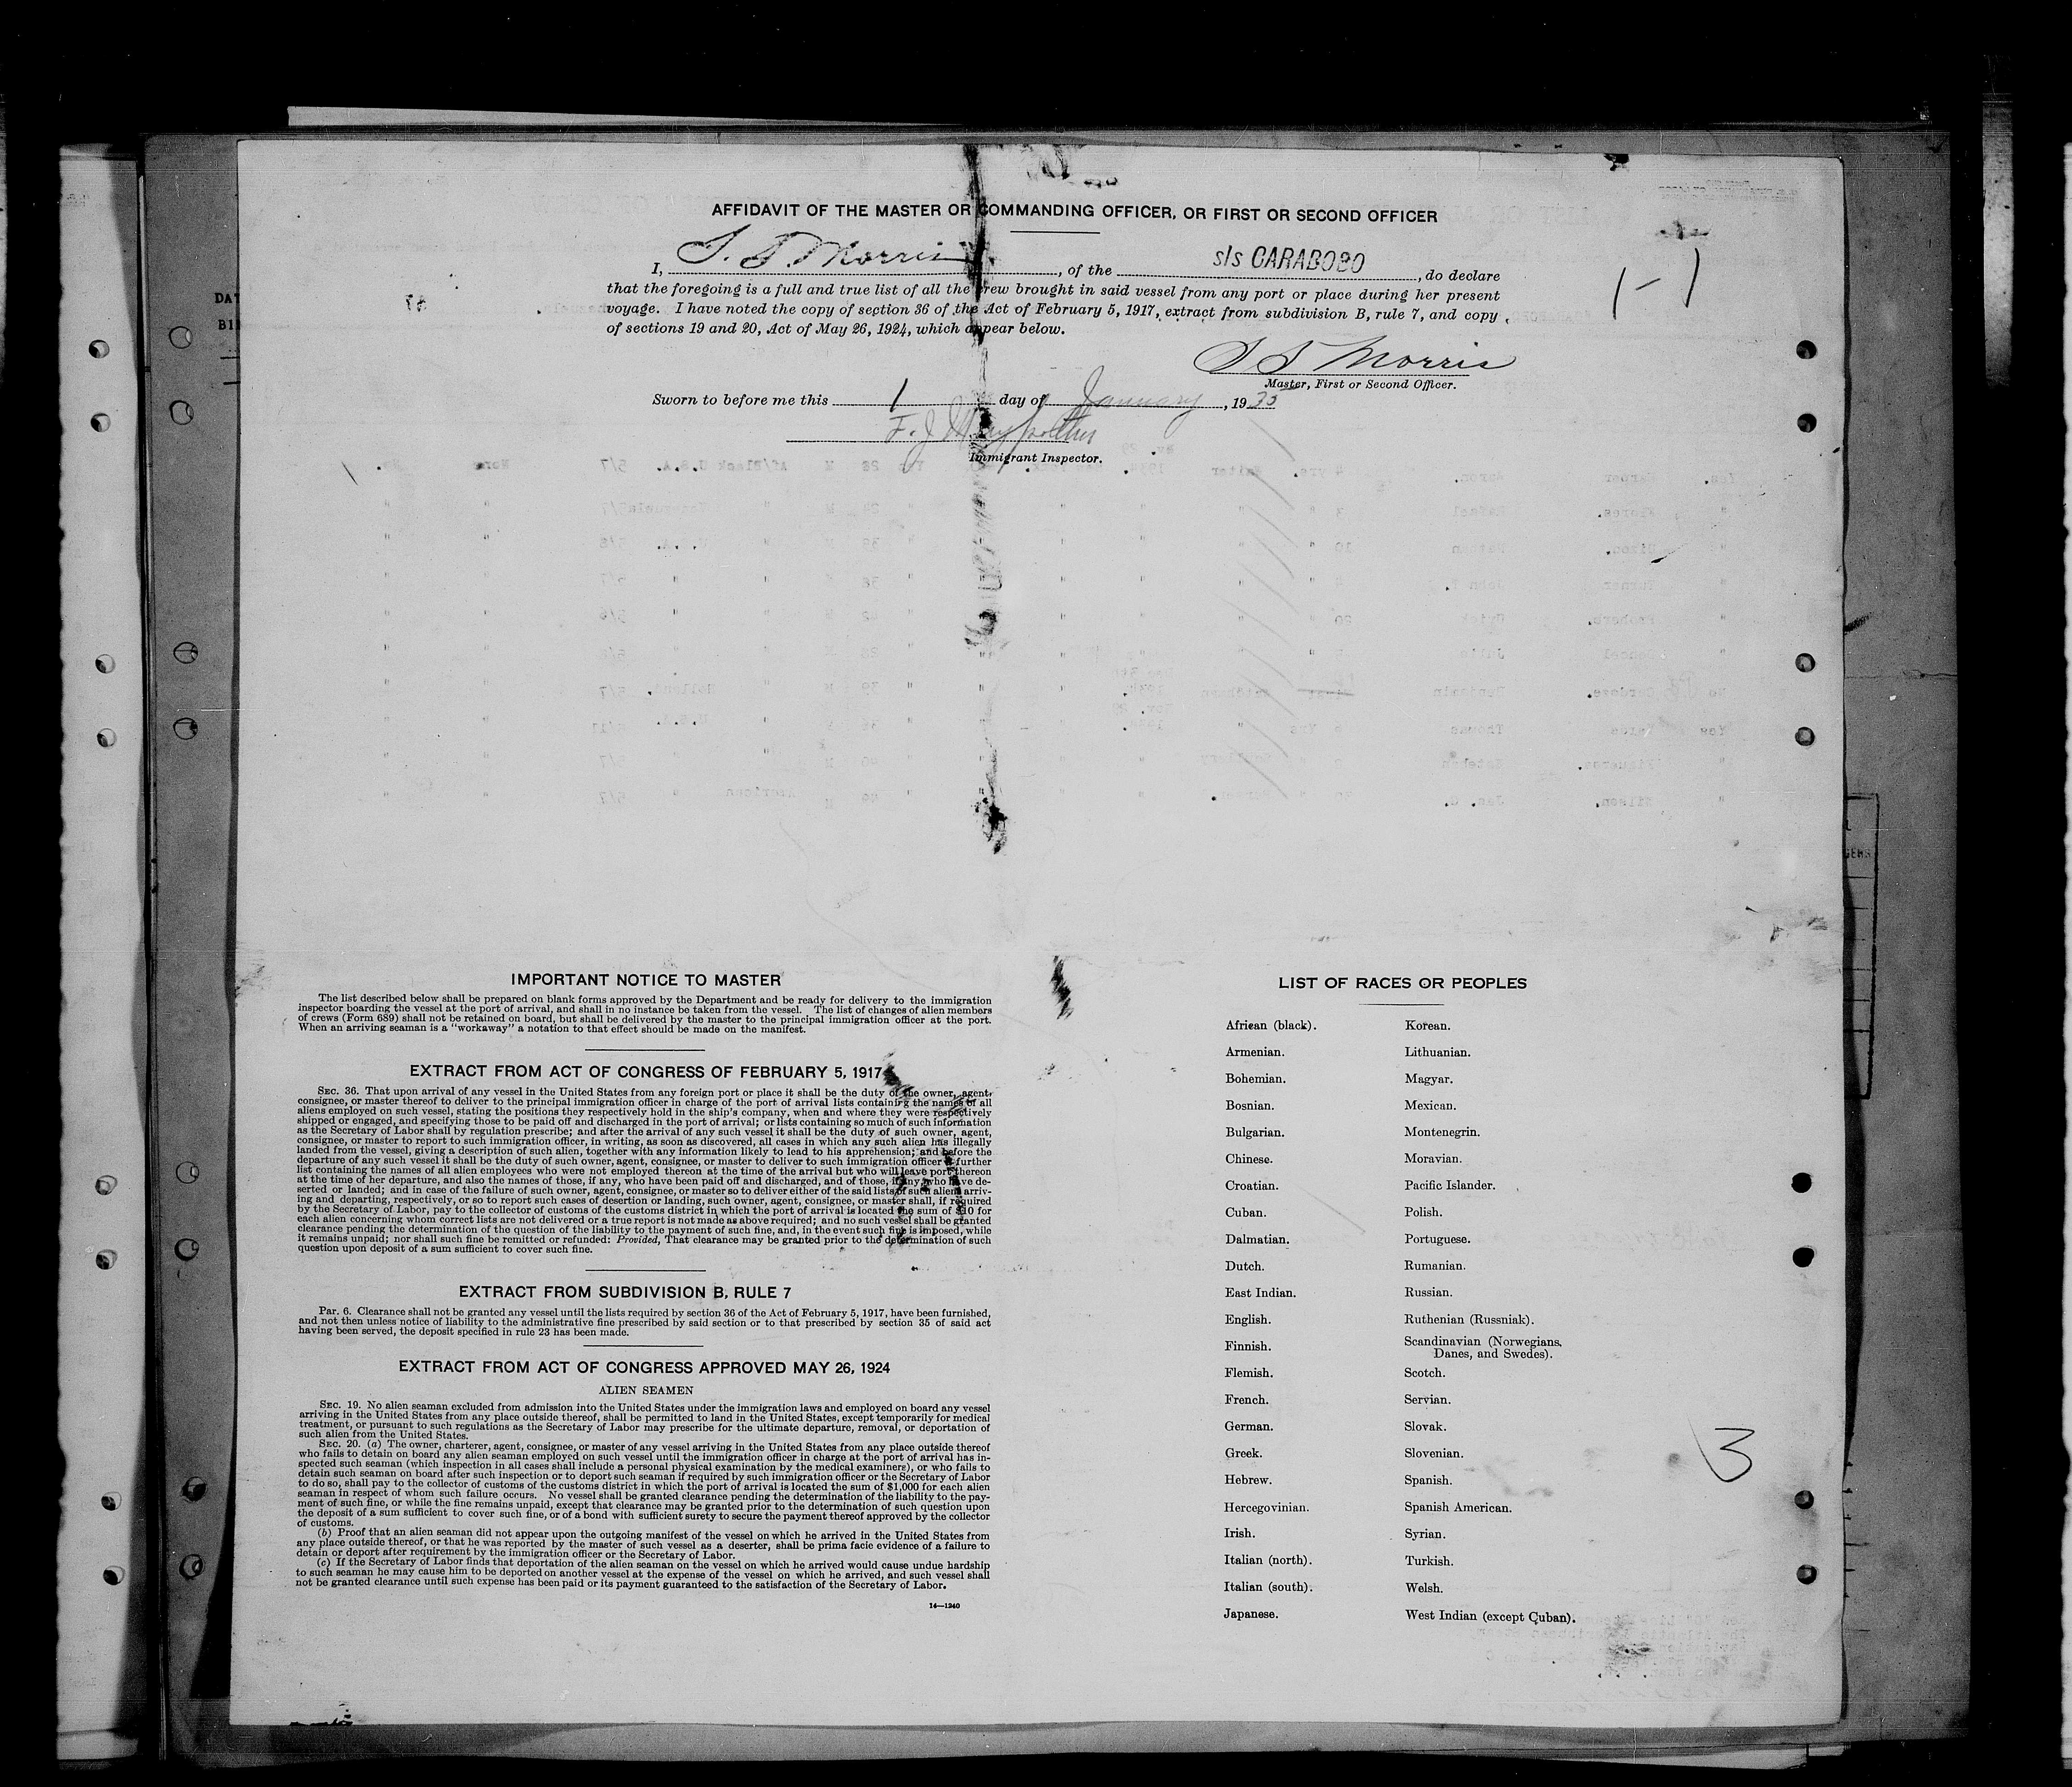 AFFIDAVIT OF THE MASTER OR COMMANDING OFFICER, OR FIRST OR SECOND OFFICER
I, Morris, of the s/s CARABOBO, do declare
that the foregoing is a full and true list of all the crew brought in said vessel from any port or place during her present
voyage. I have noted the copy of section 36 of the Act of February 5, 1917, extract from subdivision B, rule 7, and copy
of sections 19 and 20, Act of May 26, 1924, which appear below.
1-1
Morris
Master, First or Second Officer.
Sworn to before me this 1 day of January, 1935
F. J.
Immigrant Inspector.
IMPORTANT NOTICE TO MASTER
The list described below shall be prepared on blank forms approved by the Department and be ready for delivery to the immigration
inspector boarding the vessel at the port of arrival, and shall in no instance be taken from the vessel. The list of changes of alien members
of crews (Form 689) shall not be retained on board, but shall be delivered by the master to the principal immigration officer at the port.
When an arriving seaman is a "workaway" a notation to that effect should be made on the manifest.
EXTRACT FROM ACT OF CONGRESS OF FEBRUARY 5, 1917
SEC. 36. That upon arrival of any vessel in the United States from any foreign port or place it shall be the duty of the owner, agent,
consignee, or master thereof to deliver to the principal immigration officer in charge of the port of arrival lists containing the names of all
aliens employed on such vessel, stating the positions they respectively hold in the ship's company, when and where they were respectively
shipped or engaged, and specifying those to be paid off and discharged in the port of arrival; or lists containing so much of such information
as the Secretary of Labor shall by regulation prescribe; and after the arrival of any such vessel it shall be the duty of such owner, agent,
consignee, or master to report to such immigration officer, in writing, as soon as discovered, all cases in which any such alien has illegally
landed from the vessel, giving a description of such alien, together with any information likely to lead to his apprehension; and before the
departure of any such vessel it shall be the duty of such owner, agent, consignee, or master to deliver to such immigration officer a further
list containing the names of all alien employees who were not employed thereon at the time of the arrival but who will leave port thereon
at the time of her departure, and also the names of those, if any, who have been paid off and discharged, and of those, if any, who have de-
serted or landed; and in case of the failure of such owner, agent, consignee, or master so to deliver either of the said lists of such aliens arriv-
ing and departing, respectively, or so to report such cases of desertion or landing, such owner, agent, consignee, or master shall, if required
by the Secretary of Labor, pay to the collector of customs of the customs district in which the port of arrival is located the sum of $10 for
each alien concerning whom correct lists are not delivered or a true report is not made as above required; and no such vessel shall be granted
clearance pending the determination of the question of the liability to the payment of such fine, and, in the event such fine is imposed, while
it remains unpaid; nor shall such fine be remitted or refunded: Provided, That clearance may be granted prior to the determination of such
question upon deposit of a sum sufficient to cover such fine.
EXTRACT FROM SUBDIVISION B, RULE 7
Par. 6. Clearance shall not be granted any vessel until the lists required by section 36 of the Act of February 5, 1917, have been furnished,
and not then unless notice of liability to the administrative fine prescribed by said section or to that prescribed by section 35 of said act
having been served, the deposit specified in rule 23 has been made.
EXTRACT FROM ACT OF CONGRESS APPROVED MAY 26, 1924
ALIEN SEAMEN
SEC. 19. No alien seaman excluded from admission into the United States under the immigration laws and employed on board any vessel
arriving in the United States from any place outside thereof, shall be permitted to land in the United States, except temporarily for medical
treatment, or pursuant to such regulations as the Secretary of Labor may prescribe for the ultimate departure, removal, or deportation of
such alien from the United States.
SEC. 20. (a) The owner, charterer, agent, consignee, or master of any vessel arriving in the United States from any place outside thereof
who fails to detain on board any alien seaman employed on such vessel until the immigration officer in charge at the port of arrival has in-
spected such seaman (which inspection in all cases shall include a personal physical examination by the medical examiners), or who fails to
detain such seaman on board after such inspection or to deport such seaman if required by such immigration officer or the Secretary of Labor
to do so, shall pay to the collector of customs of the customs district in which the port of arrival is located the sum of $1,000 for each alien
seaman in respect of whom such failure occurs. No vessel shall be granted clearance pending the determination of the liability to the pay-
ment of such fine, or while the fine remains unpaid, except that clearance may be granted prior to the determination of such question upon
the deposit of a sum sufficient to cover such fine, or of a bond with sufficient surety to secure the payment thereof approved by the collector
of customs.
(b) Proof that an alien seaman did not appear upon the outgoing manifest of the vessel on which he arrived in the United States from
any place outside thereof, or that he was reported by the master of such vessel as a deserter, shall be prima facie evidence of a failure to
detain or deport after requirement by the immigration officer or the Secretary of Labor.
(c) If the Secretary of Labor finds that deportation of the alien seaman on the vessel on which he arrived would cause undue hardship
to such seaman he may cause him to be deported on another vessel at the expense of the vessel on which he arrived, and such vessel shall
not be granted clearance until such expense has been paid or its payment guaranteed to the satisfaction of the Secretary of Labor.
14—1240
LIST OF RACES OR PEOPLES
African (black). Korean.
Armenian. Lithuanian.
Bohemian. Magyar.
Bosnian. Mexican.
Bulgarian. Montenegrin.
Chinese. Moravian.
Croatian. Pacific Islander.
Cuban. Polish.
Dalmatian. Portuguese.
Dutch. Rumanian.
East Indian. Russian.
English. Ruthenian (Russniak).
Finnish. Scandinavian (Norwegians,
Danes, and Swedes).
Flemish. Scotch.
French. Servian.
German. Slovak.
Greek. Slovenian.
Hebrew. Spanish.
Hercegovinian. Spanish American.
Irish. Syrian.
Italian (north). Turkish.
Italian (south). Welsh.
Japanese. West Indian (except Cuban).
3